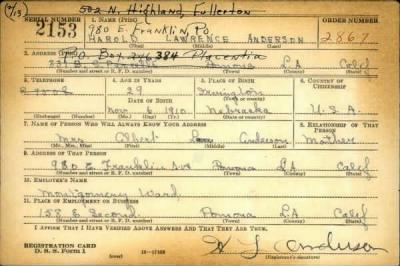 (7/13) 502 N. Highland, Fullerton
SERIAL NUMBER 1. NAME (Print) ORDER NUMBER
980 E. Franklin, Po
2153 HAROLD LAWRENCE ANDERSON 2867
(First) (Middle) (Last)
2. ADDRESS (Print)
P.O. Box 384 Placentia
Pomona L.A. Calif
(Number and street or R. F. D. number) (Town) (County) (State)
3. TELEPHONE 4. AGE IN YEARS 5. PLACE OF BIRTH 6. COUNTRY OF CITIZENSHIP
29
DATE OF BIRTH (Town or county)
Nov 6, 1910 Nebraska U.S.A.
(Exchange) (Number) (Mo.) (Day) (Yr.) (State or country)
7. NAME OF PERSON WHO WILL ALWAYS KNOW YOUR ADDRESS 8. RELATIONSHIP OF THAT PERSON
Mrs Albert Anderson Mother
(Mr., Mrs., Miss) (First) (Middle) (Last)
9. ADDRESS OF THAT PERSON
980 E. Franklin Ave Pomona L.A. Calif
(Number and street or R. F. D. number) (Town) (County) (State)
10. EMPLOYER'S NAME
Montgomery Ward
11. PLACE OF EMPLOYMENT OR BUSINESS
158 E. Second Pomona L.A. Calif
(Number and street or R. F. D. number) (Town) (County) (State)
I AFFIRM THAT I HAVE VERIFIED ABOVE ANSWERS AND THAT THEY ARE TRUE.
H L Anderson
REGISTRATION CARD
D. S. S. Form 1 (Registrant's signature)